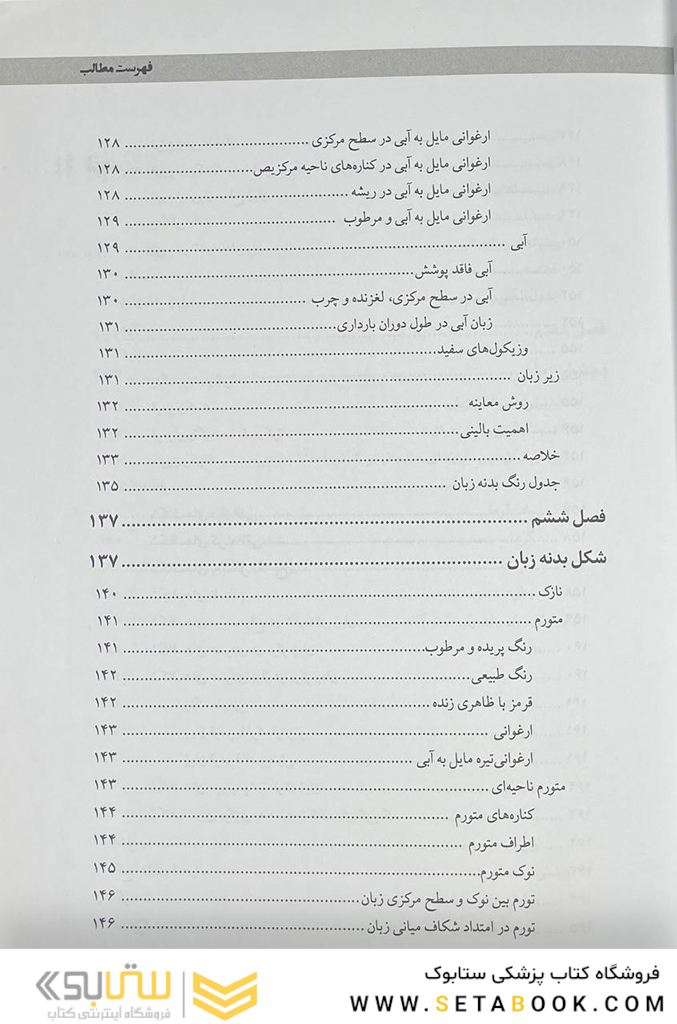 فهرست مطالب
ارغوانی مایل به آبی در سطح مرکزی ............ ۱۲۸
ارغوانی مایل به آبی در کناره‌های ناحیه مرکزیص ............ ۱۲۸
ارغوانی مایل به آبی در ریشه ............ ۱۲۸
ارغوانی مایل به آبی و مرطوب ............ ۱۲۹
آبی ............ ۱۲۹
آبی فاقد پوشش ............ ۱۳۰
آبی در سطح مرکزی، لغزنده و چرب ............ ۱۳۰
زبان آبی در طول دوران بارداری ............ ۱۳۱
وزیکول‌های سفید ............ ۱۳۱
زیر زبان ............ ۱۳۱
روش معاینه ............ ۱۳۲
اهمیت بالینی ............ ۱۳۲
خلاصه ............ ۱۳۳
جدول رنگ بدنه زبان ............ ۱۳۵
فصل ششم ............ ۱۳۷
شکل بدنه زبان ............ ۱۳۷
نازک ............ ۱۴۰
متورم ............ ۱۴۱
رنگ پریده و مرطوب ............ ۱۴۱
رنگ طبیعی ............ ۱۴۲
قرمز با ظاهری زنده ............ ۱۴۲
ارغوانی ............ ۱۴۳
ارغوانی‌تیره مایل به آبی ............ ۱۴۳
متورم ناحیه‌ای ............ ۱۴۳
کناره‌های متورم ............ ۱۴۴
اطراف متورم ............ ۱۴۴
نوک متورم ............ ۱۴۵
تورم بین نوک و سطح مرکزی زبان ............ ۱۴۶
تورم در امتداد شکاف میانی زبان ............ ۱۴۶
فروشگاه کتاب پزشکی ستابوک
WWW.SETABOOK.COM
ستابوک
فروشگاه اینترنتی کتاب